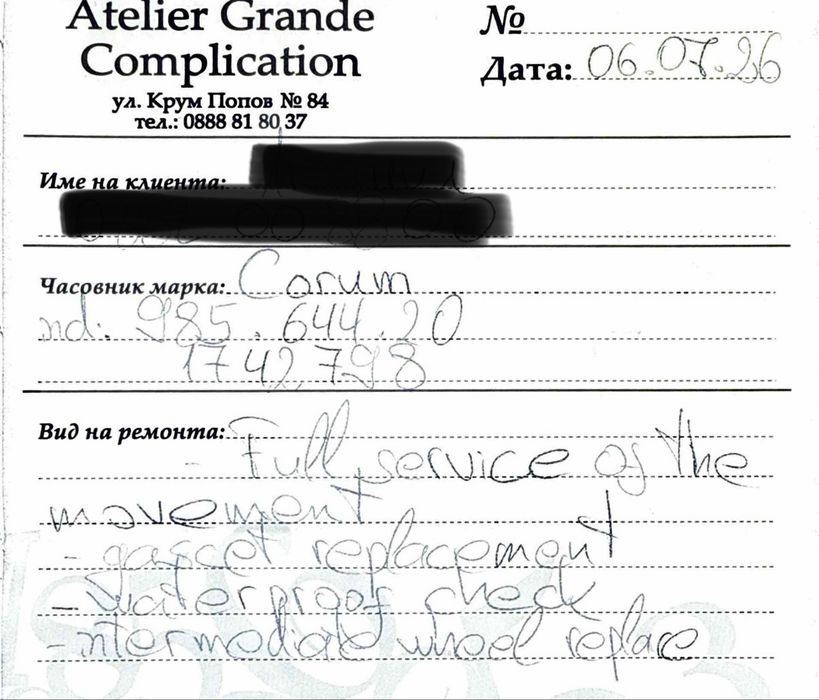 Atelier Grande
Complication
ул. Крум Попов № 84
тел.: 0888 81 80 37
№
Дата: 06.07.26
Име на клиента:
Часовник марка: Corum
985.644.20
1742798
Вид на ремонта:
- Full service of the
movement
- gascet replacement
- waterproof check
- intermediate wheel replace